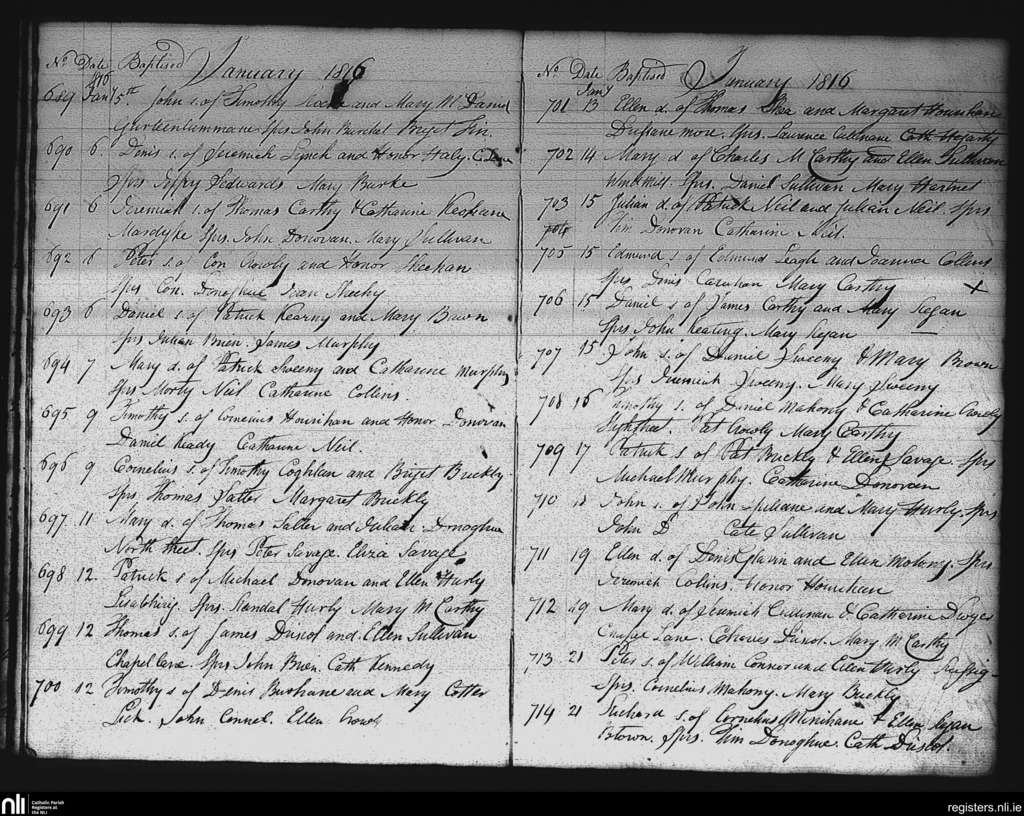 No. Date Baptised January 1816
1816
689 Jany 5th John s. of Timothy and Mary McDaniel
Sprs John Burchel Briget
690 6. Denis s. of Jeremiah Lynch and Honor Haly. C. Lane
Sprs Jeffry Sedwards Mary Burke
691 6 Jeremiah s. of Thomas Carthy & Catharine Keohane
Mardyke Sprs John Donovan. Mary Sullivan
692 6 Peter s. of Con Crowly and Honor Sheehan
Sprs Con. Donoghue Joan Sheehy
693 6 Daniel s. of Patrick Kearny and Mary Bawn
Sprs Julian Brien. James Murphy
694 7 Mary d. of Patrick Sweeny and Catharine Murphy
Sprs Morty Neil Catharine Collins.
695 9 Timothy s. of Cornelius Hounihan and Honor Donovan
Daniel Keady Catharine Neil.
696 9 Cornelius s. of Timothy Coghlan and Briget Buckly.
Sprs Thomas Salter Margaret Buckly
697. 11 Mary d. of Thomas Salter and Julian Donoghue
North Street. Sprs Peter Savage. Eliza Savage
698 12. Patrick s of Michael Donovan and Ellen Hurly
Sprs Randal Hurly Mary McCarthy
699 12 Thomas s. of James Driscol and Ellen Sullivan
Chapel Lane. Sprs John Brien. Cath Kennedy
700 12 Timothy s of Denis Buohane and Mary Cotter
Lick. John Connel. Ellen Crowly
No. Date Baptised January 1816
Jany
701 13 Ellen d. of Thomas Shea and Margaret Hounihan
Drishane more. Sprs. Laurence Cullinane Cath Hegarty
702 14 Mary d. of Charles McCarthy and Ellen Sullivan
Wind Mill. Sprs. Daniel Sullivan Mary Hartnet
703 15 Julian d. of Patrick Neil and Julian Neil. Sprs
704 Tim Donovan Catharine Neil.
705 15 Edmund s. of Edmund Leagh and Joanna Collins
Sprs Denis Mary Carthy x
706 15 Daniel s. of James Carthy and Mary Regan
Sprs John Keating. Mary Regan
707 15 John s. of Daniel Sweeny & Mary Brown
Sprs Jeremiah Sweeny. Mary Sweeny
708 16 Timothy s. of Daniel Mahony & Catharine Crowly
Pat Crowly Mary Carthy
709 17 Patrick s of Pat Buckly & Ellen Savage. Sprs
Michael Murphy. Catharine Donovan
710 18 John s. of John and Mary Hurly. Sprs
John D Cate Sullivan
711 19. Ellen d. of Denis Slavin and Ellen Molony. Sprs
Jeremiah Collins. Honor Hounihan
712 19 Mary d. of Jeremiah Cullinan & Catharine Dwyer
Chapel Lane. Charles Driscol. Mary McCarthy
713. 21 Peter s. of William Connor and Ellen Hurly
Sprs. Cornelius Mahony. Mary Buckly
714 21 Richard s. of Cornelius & Ellen Ryan
Sprs. Tim Donoghue. Cath Driscol.
nli Catholic Parish
Registers at
the NLI
registers.nli.ie